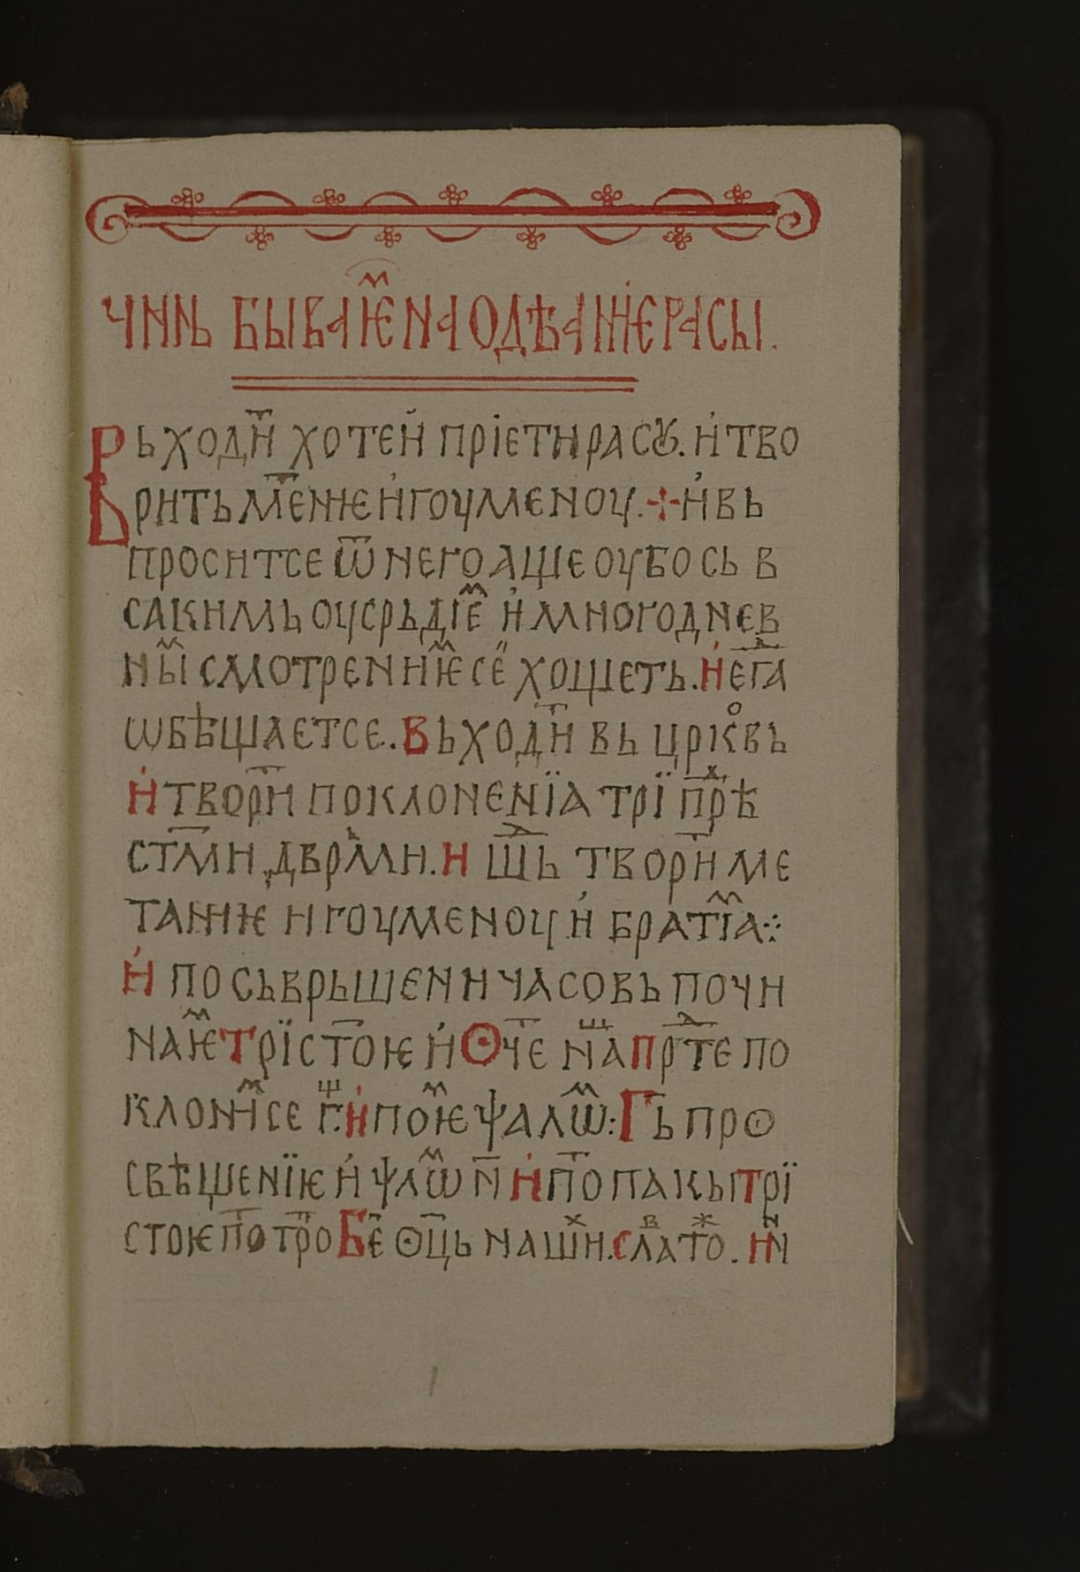 ЧИНЬ БЫВАѤⷨ НА ОДѢАНІЄ РАСЫ.
Вьходиⷮ хотєи прїєти расꙋ. и тво
рить мⷮєниѥ игоумєноу. и вь
проситсе ѿ нєго аще оубо сь в
сакимь оусрьдїєⷨ и многоднєв
ныⷨ смотрєниѥⷨ сє хощєть. и єгⷣа
ѡбѣщаєтсе. Вьходиⷮ вь црⷪквь
и твориⷮ поклонєнїа трї прⷣѣ
стⷭми двьрми. и шⷣь твориⷮ мє
таниѥ игоумєноу и братїаⷨ:
и по сьврьшєни часовь почи
наѥⷨ трїстоѥ и Ѻч҃є нⷳа прⷣтє по
клонимⷭсе г҃. и поѥⷨ ѱалѡⷨ: Гь про
свѣщєнїѥ и ѱлѡⷨ н҃ и поⷮ пакы трї
стоѥ поⷮ троⷪ Бє҃ Ѻць нашиⷯ. слаⷡ тоⷤ. инⷩ